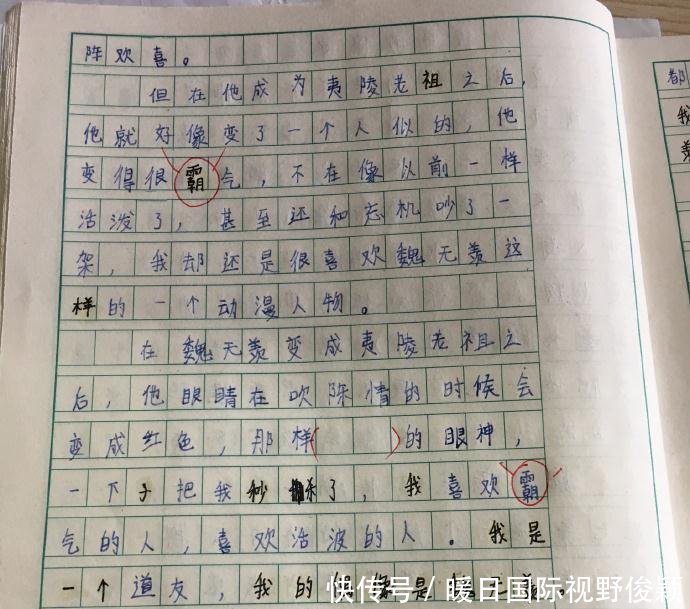 阵欢喜。
但在他成为夷陵老祖之后,
他就好像变了一个人似的,他
变得很霸气,不在像以前一样
活泼了,甚至还和忘机吵了一
架,我却还是很喜欢魏无羡这
样的一个动漫人物。
在魏无羡变成夷陵老祖之
后,他眼睛在吹陈情的时候会
变成红色,那样( )的眼神,
一下子把我秒杀了,我喜欢霸
气的人,喜欢活波的人。我是
一个道友,我的
都
我
羡
快传号/暖日国际视野俊颖